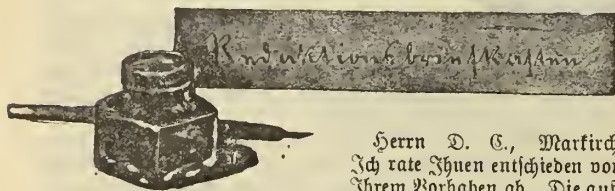 Redaktionsbriefkasten
Herrn D. C., Markirch
Ich rate Ihnen entschieden vo
Ihrem Vorhaben ab. Die auf